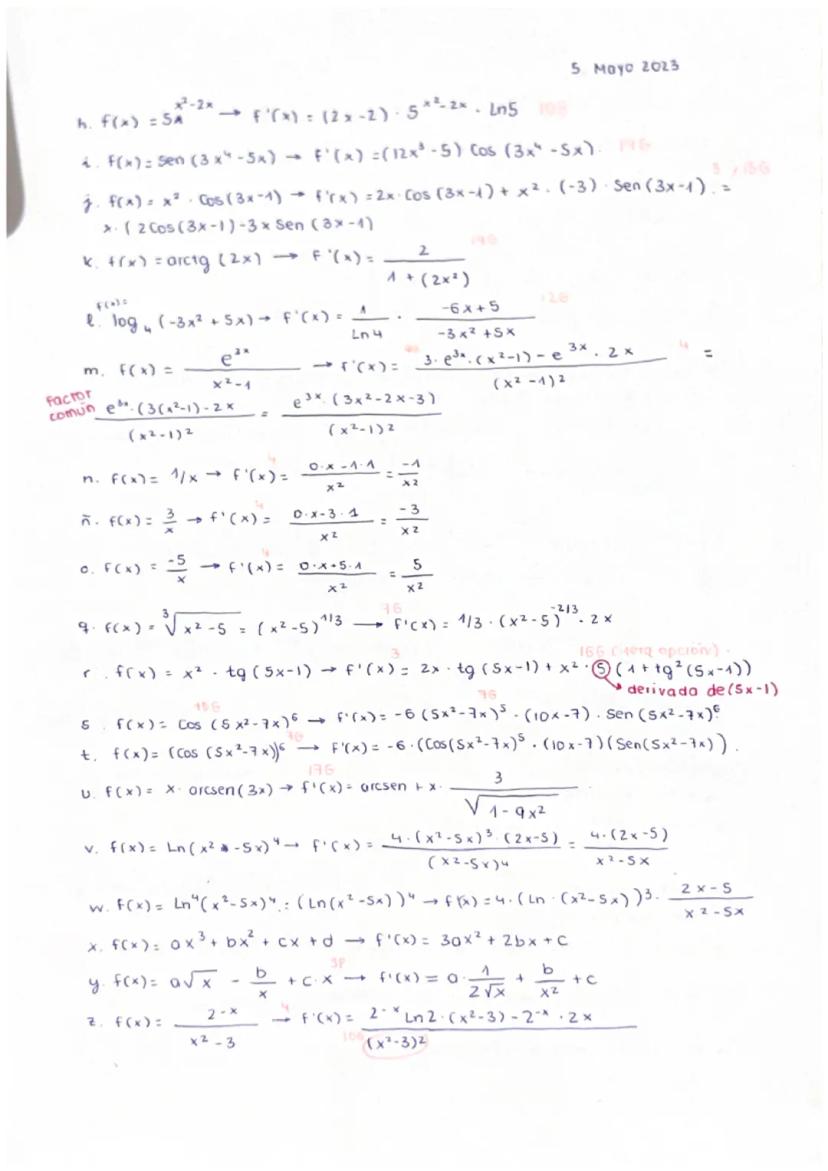 5 Mayo 2023
h. f(x) = 5^(x²-2x) → f'(x) = (2x-2) · 5^(x²-2x) · Ln5 10G
i. f(x) = Sen (3x⁴-5x) → f'(x) = (12x³-5) Cos (3x⁴-5x). 14G
3 y 15G
j. f(x) = x² · Cos(3x-1) → f'(x) = 2x·Cos(3x-1) + x² · (-3) · Sen(3x-1). =
x · (2Cos(3x-1)-3x Sen (3x-1)
19G
k. f(x) = arctg (2x) → f'(x) = 2 / (1 + (2x²))
f(x)= 12G
l. log₄ (-3x² + 5x) → f'(x) = 1/Ln4 · (-6x+5)/(-3x²+5x)
m. f(x) = e^(3x)/(x²-1) → f'(x) = (3·e^(3x)·(x²-1) - e^(3x) · 2x)/(x²-1)² 4 =
factor común (e^(3x)·(3(x²-1)-2x)/(x²-1)² = (e^(3x)·(3x²-2x-3))/(x²-1)²
4
n. f(x) = 1/x → f'(x) = (0·x-1·1)/x² = -1/x²
4
ñ. f(x) = 3/x → f'(x) = (0·x-3·1)/x² = -3/x²
4
o. f(x) = -5/x → f'(x) = (0·x+5·1)/x² = 5/x²
7G
q. f(x) = ∛(x²-5) = (x²-5)^(1/3) → f'(x) = 1/3 · (x²-5)^(-2/3) · 2x
3 16G (1era opción).
r. f(x) = x² · tg (5x-1) → f'(x) = 2x · tg (5x-1) + x² · 5 (1+tg²(5x-1))
derivada de (5x-1)
15G 7G
s. f(x) = Cos (5x²-7x)⁶ → f'(x) = -6 (5x²-7x)⁵ · (10x-7) · Sen (5x²-7x)⁶
7G
t. f(x) = (Cos (5x²-7x))⁶ → f'(x) = -6 · (Cos(5x²-7x)⁵ · (10x-7)(Sen(5x²-7x)).
17G
u. f(x) = x · arcsen(3x) → f'(x) = arcsen + x · 3/√(1-9x²)
v. f(x) = Ln(x² -5x)⁴ → f'(x) = (4·(x²-5x)³·(2x-5))/(x²-5x)⁴ = (4·(2x-5))/(x²-5x)
w. f(x) = Ln⁴(x²-5x)⁴ = (Ln(x²-5x))⁴ → f'(x) = 4·(Ln · (x²-5x))³ · (2x-5)/(x²-5x)
x. f(x) = ax³ + bx² + cx + d → f'(x) = 3ax² + 2bx + c
3P
y. f(x) = a√x - b/x + c·x → f'(x) = a · 1/(2√x) + b/x² + c
4
z. f(x) = 2^(-x)/(x²-3) → f'(x) = (2^(-x) Ln2 · (x²-3) - 2^(-x) · 2x)/(x²-3)²
10G